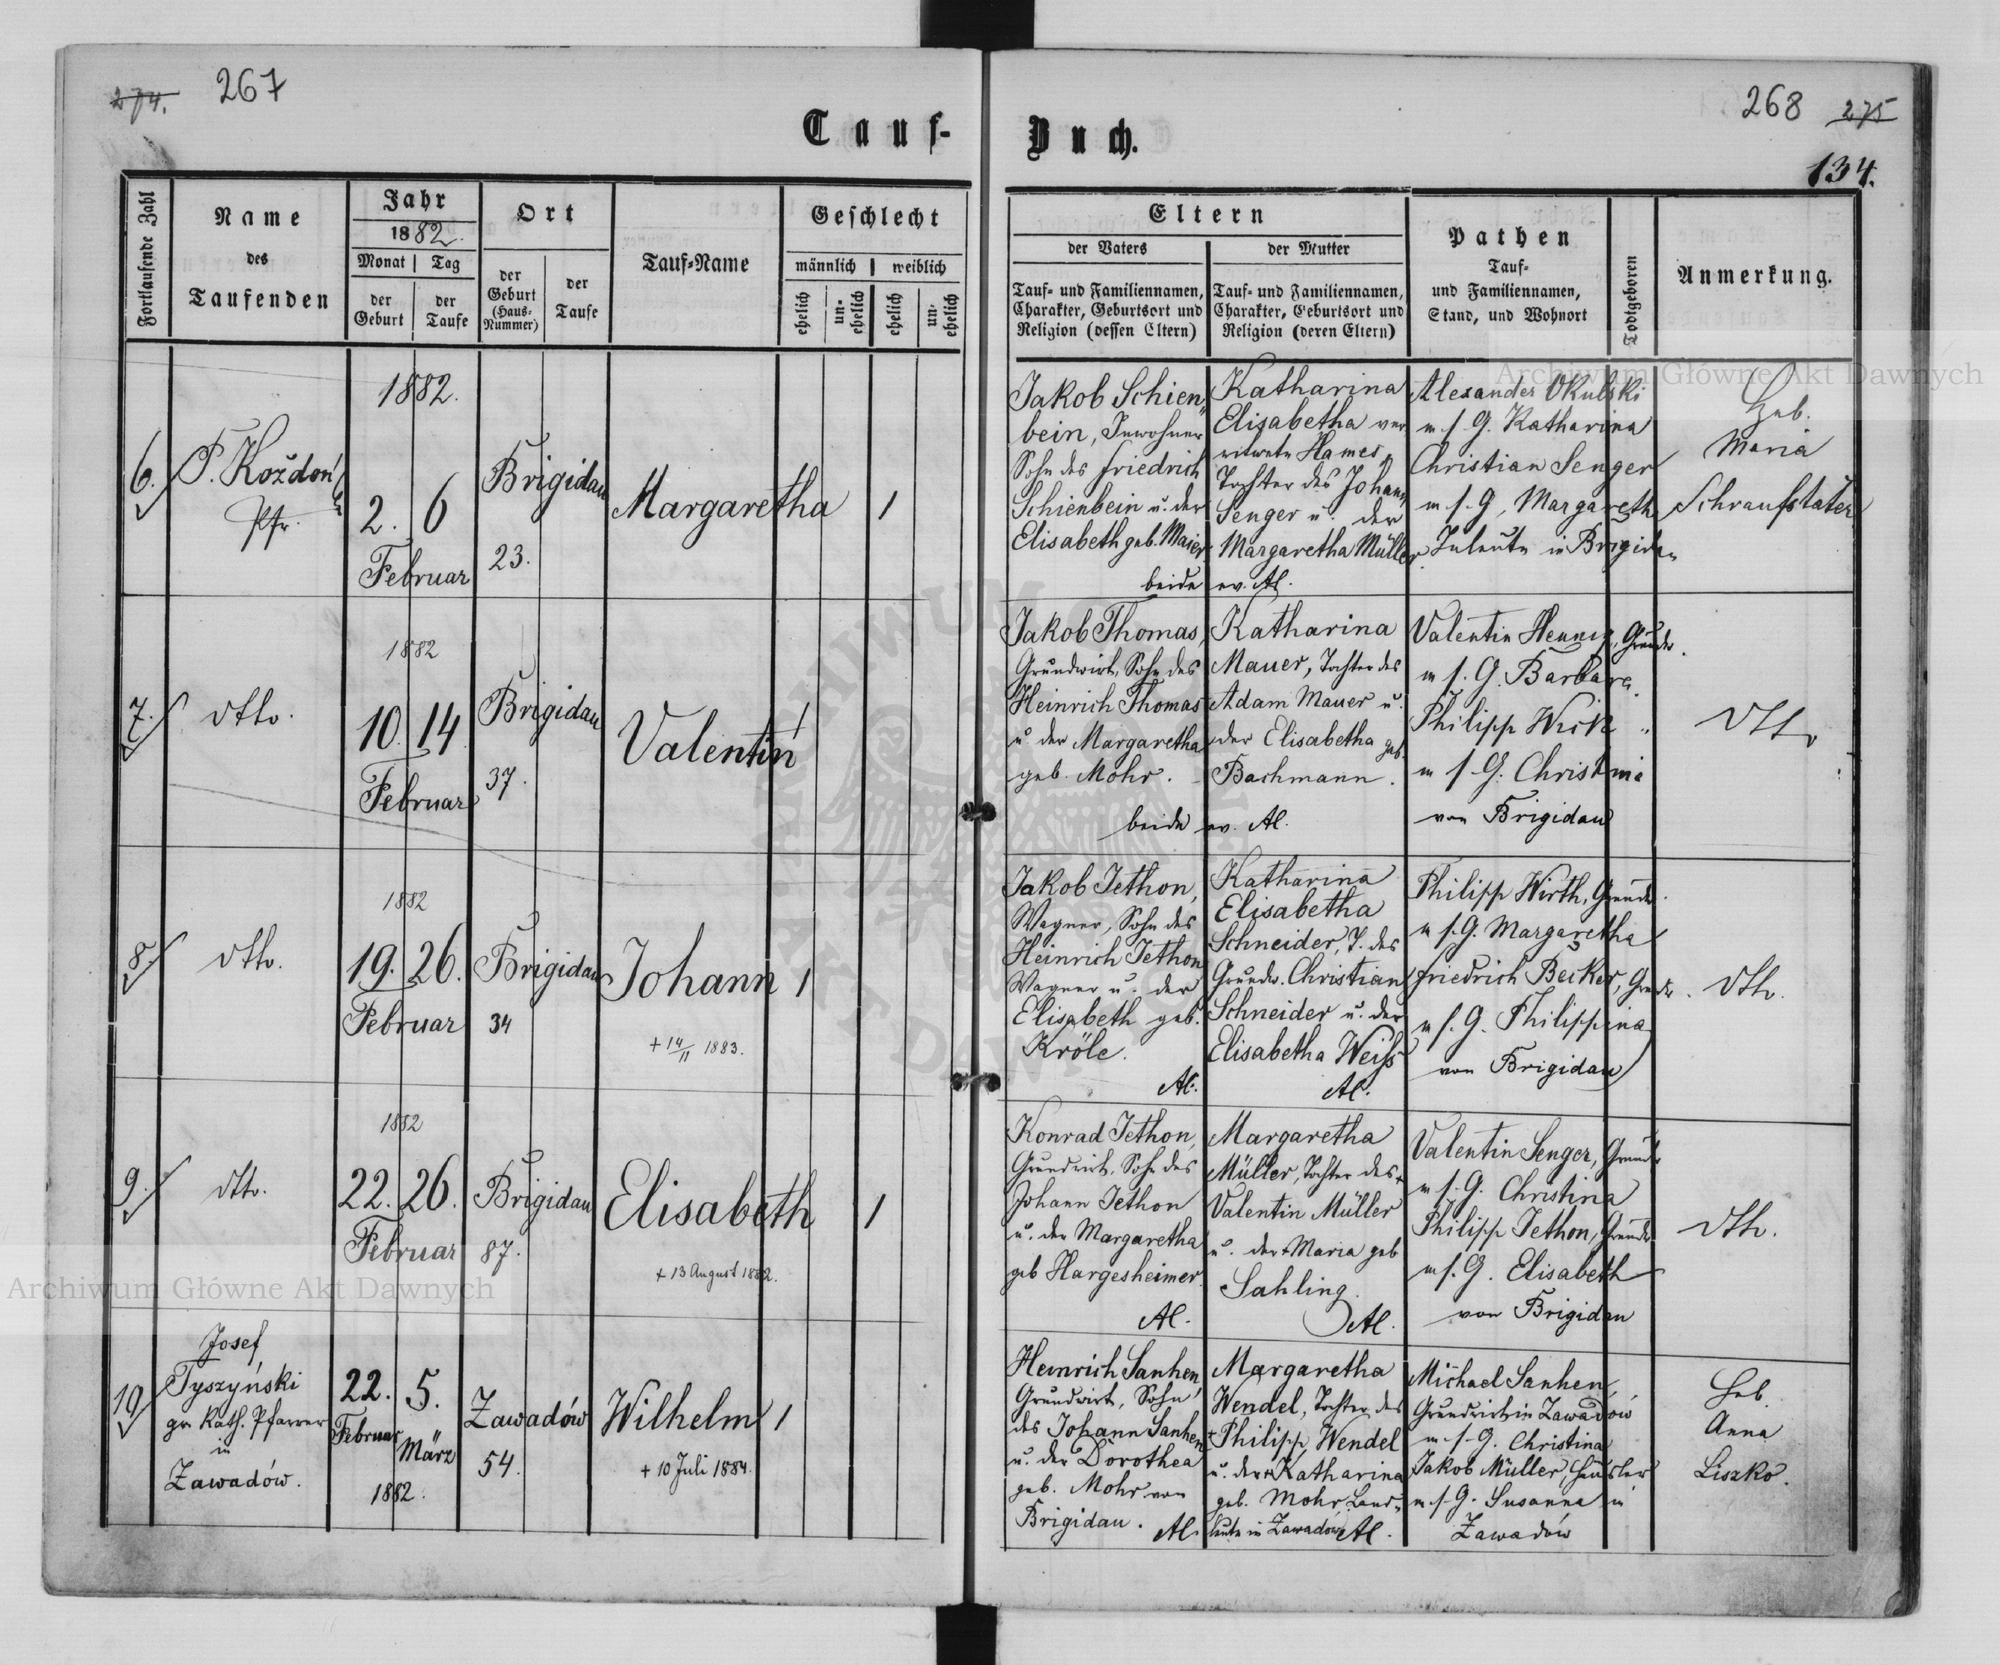 274.
267
268
275
134.
Tauf-
Buch.
Fortlaufende Zahl
Name
des
Taufenden
Jahr
1882.
Monat
Tag
der
Geburt
der
Taufe
Ort
der
Geburt
(Haus-
Nummer)
der
Taufe
Tauf-Name
Geschlecht
männlich
weiblich
ehelich
un-
ehelich
ehelich
un-
ehelich
Eltern
der Vaters
der Mutter
Tauf- und Familiennamen,
Charakter, Geburtsort und
Religion (dessen Eltern)
Tauf- und Familiennamen,
Charakter, Geburtsort und
Religion (deren Eltern)
Pathen
Tauf-
und Familiennamen,
Stand, und Wohnort
Todtgeboren
Anmerkung.
6.
P. Koždoń
Pfr.
1882.
2. 6
Februar
Brigidau
23.
Margaretha
1
Jakob Schien„
bein, Inwohner
Sohn des Friedrich
Schienbein u. der
Elisabeth geb. Maier
beide
Katharina
Elisabetha ver
witwete Hames,
Tochter des Johann
Senger u. der
Margaretha Müller
ev. Al.
Alexander Okulski
m. s. G. Katharina
Christian Senger
m s. G. Margareth
Inleute in Brigidau
Heb.
Maria
Schraufstäter
7.
dtto.
1882
10. 14
Februar
Brigidau
37.
Valentin
1
Jakob Thomas,
Grundwirt, Sohn des
Heinrich Thomas
u der Margaretha
geb. Mohr.
beide
Katharina
Mauer, Tochter des
Adam Mauer u.
der Elisabetha geb.
Bachmann.
ev. Al.
Valentin Hennig, Grundw.
m s. G. Barbara.
Philipp Wick „
m s. G. Christina
von Brigidau
dtto
8.
dtto.
1882
19. 26.
Februar
Brigidau
34
Johann
1
+ 14/11 1883.
Jakob Jethon,
Wagner, Sohn des
Heinrich Jethon
Wagner u. der
Elisabeth geb.
Kröle.
Al.
Katharina
Elisabetha
Schneider, T. des
Grundw. Christian
Schneider u. der
Elisabetha Weiss
Al.
Philipp Wirth, Grundw.
m s. G. Margaretha
Friedrich Becker, Grundw.
m s. G. Philippina
von Brigidau
dtto.
9.
dtto.
1882
22. 26.
Februar
Brigidau
87.
Elisabeth
1
+ 13 August 1882.
Konrad Jethon,
Grundwirt, Sohn des
Johann Jethon
u. der Margaretha
geb Hargesheimer
Al.
Margaretha
Müller, Tochter des +
Valentin Müller
u. der + Maria geb
Sahling.
Al.
Valentin Senger, Grundw
m s. G. Christina
Philipp Jethon, Grundw
m s. G. Elisabeth
von Brigidau
dtto.
10
Josef
Tyszyński
gr. kath. Pfarrer
in
Zawadów.
22. 5.
Februar
März
1882.
Zawadów
54.
Wilhelm
1
+ 10 Juli 1884.
Heinrich Sanhen,
Grundwirt, Sohn
des Johann Sanhen
u. der Dorothea
geb. Mohr von
Brigidau.
Al.
Margaretha
Wendel, Tochter des
+ Philipp Wendel
u. der + Katharina
geb. Mohr Land„
leute in Zawadów Al.
Michael Sanhen,
Grundwirt in Zawadów
m. s. G. Christina
Jakob Müller, Häusler
m. s. G. Susanna in
Zawadów
Heb.
Anna
Liszko.
Archiwum Główne Akt Dawnych
Archiwum Główne Akt Dawnych